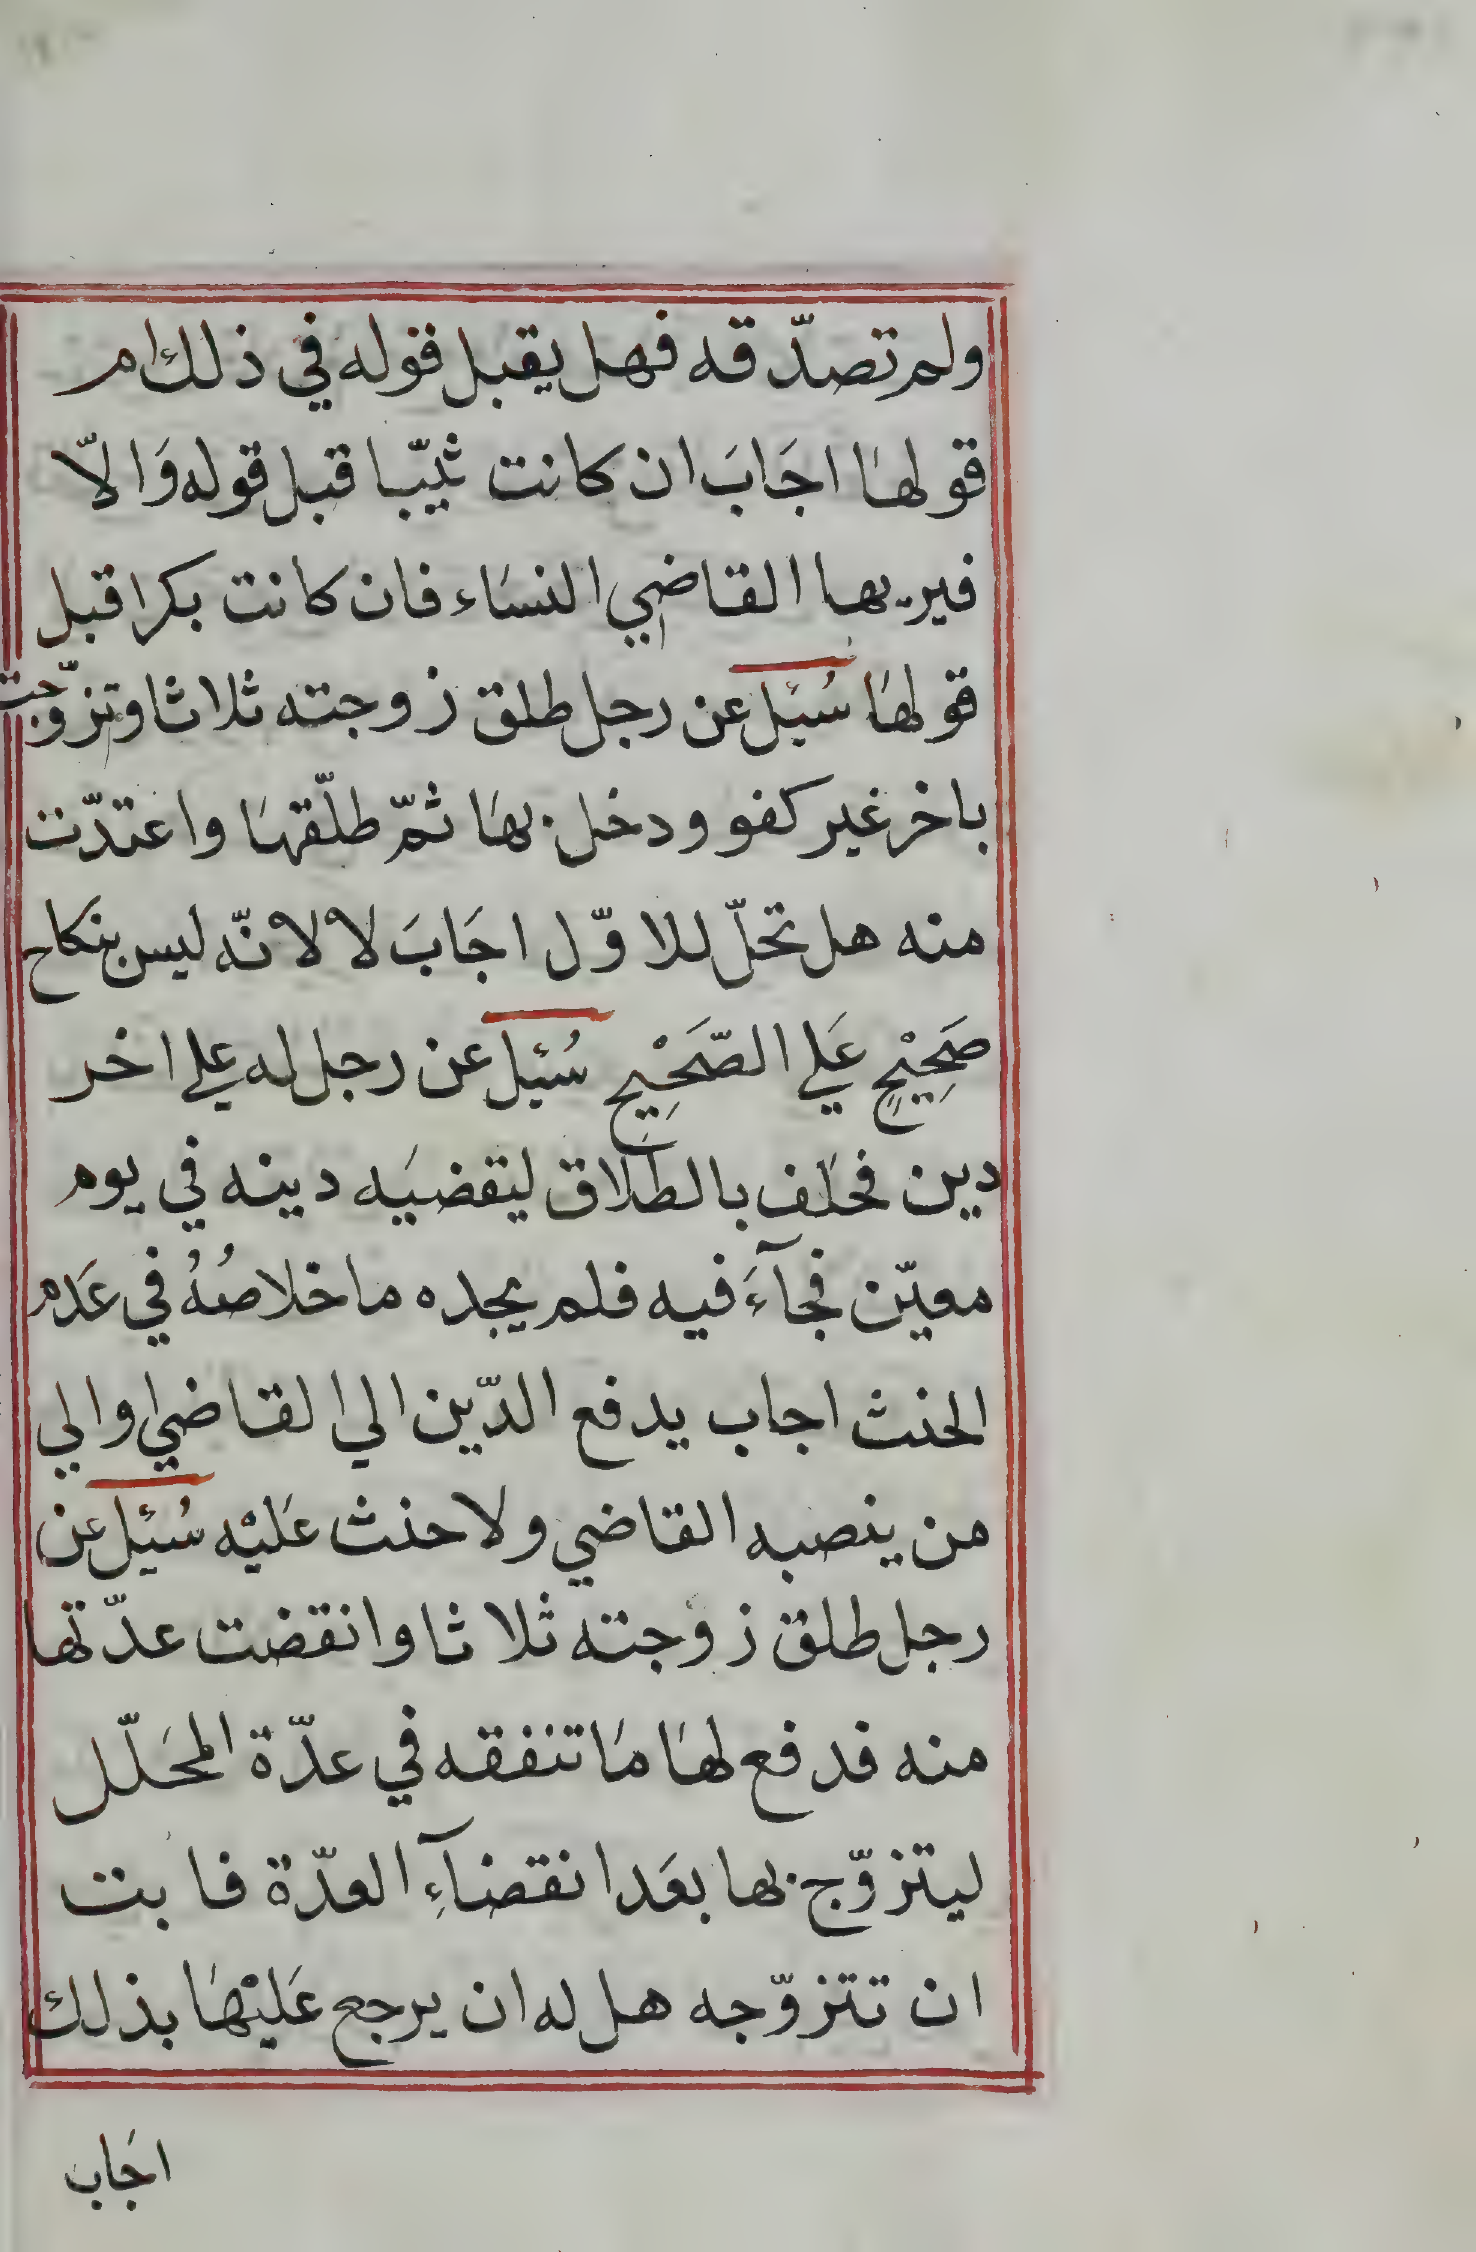 ولم تصدّقه فهل يقبل قوله في ذلك ام
قولها اجَابَ ان كانت ثيّبا قبل قوله وَالاّ
فيريها القاضي النسَاء فان كانت بكرا قبل
قولهَا سُئِل عن رجل طلق زوجته ثلاثا وتزوّجت
باخر غير كفو ودخل بهَا ثمّ طلّقهَا واعتدّت
منه هل تحلّ للاوّل اجَابَ لا لانّه ليس بنكاح
صَحِيْحٍ عَلي الصّحَيْحِ سُئِل عن رجل له علي اخر
دين فحَلف بالطلاق ليقضيَه دينه في يوم
معيّن فجآءَ فيه فلم يجده ما خلاصُهُ في عَدم
الحنث اجاب يدفع الدّين الي القاضي او الي
من ينصبه القاضي ولا حنث عَليْه سُئِل عن
رجل طلق زوجته ثلاثا وانقضت عدّتها
منه فدفع لهَا مَا تنفقه في عدّة المحَلّل
ليتزوّج بها بعَد انقضآءِ العدّة فابت
ان تتزوّجه هل له ان يرجع عَليْهَا بذلك
اجَاب